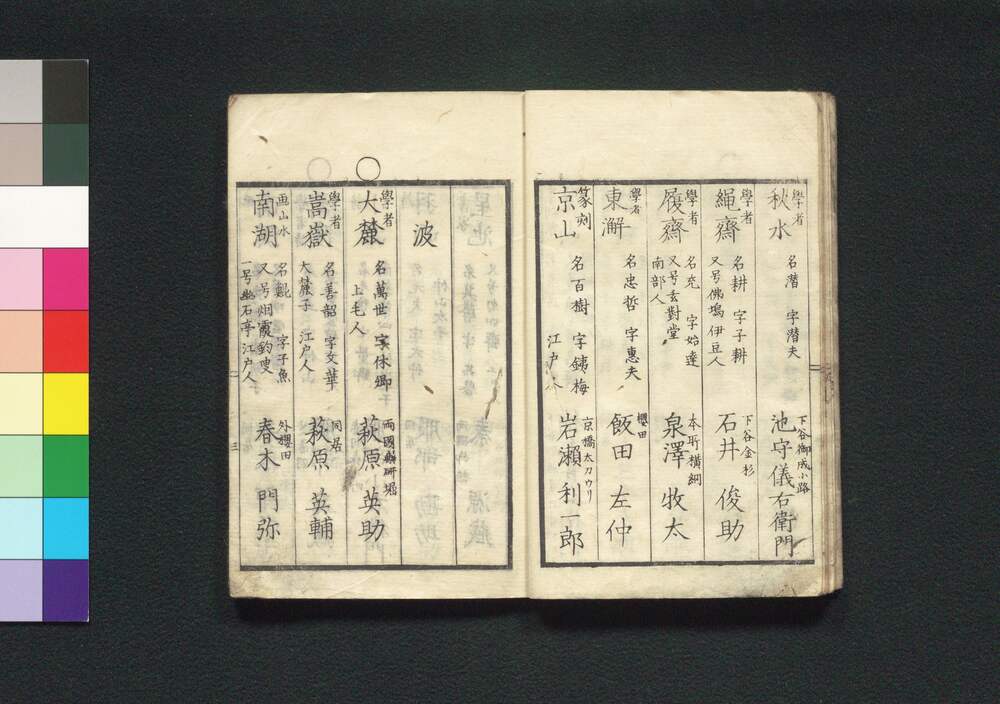 學者
秋水
名潛 字潛夫
下谷御成小路
池守儀右衛門
學者
繩齋
名耕 字子耕
又号佛塢 伊豆人
下谷金杉
石井 俊助
學者
履齋
名充 字始達
又号玄對堂
南部人
本所横網
泉澤 牧太
學者
東澥
名忠哲 字惠夫
櫻田
飯田 左仲
篆刻
京山
名百樹 字銕梅
江户人
京橋太刀ウリ
岩瀬利一郎
波
學者
大麓
名萬世 字休卿
上毛人
両國藥研堀
萩原 英助
學者
嵩嶽
名善韶 字文華
大麓子 江户人
同居
萩原 英輔
画山水
南湖
名鯤 字子魚
又号烟霞釣叟
一号幽石亭 江户人
外櫻田
春木 門弥
三